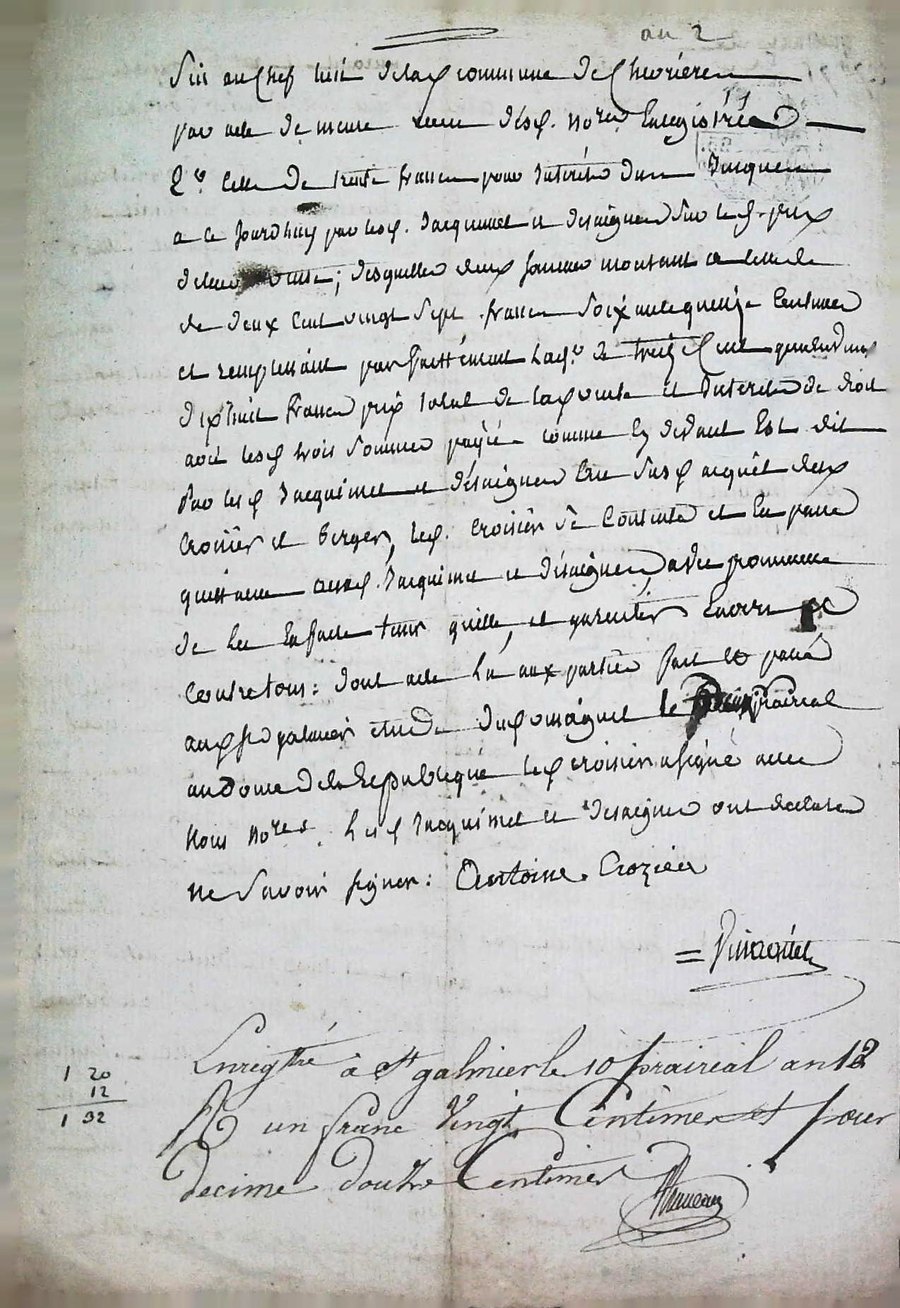 an 2
Sis au Chef lieu de lad commune de Chevrieres
par acte de meme recue desd. Nores Enregistrée
2º Celle de trente francs pour interets dus Jusques
a ce jourdhuy par lesd. Jacquemet et desaignes Sur led. prix
de lad vente; desquelles deux sommes montant a celle de
de deux Cent vingt Sept francs Soixante quinze Centimes
et remplissant parfaittément
dixhuit francs prix total de lad vente et Interets de droit
avec lesd trois Sommes payée comme Cy devant Est dit
Par lesd Jacquemet et désaignes
Crozier et Berger, led. Croizier Se Contente et En passe
quittance auxd. Jacquemet et désaignes, avec promesse
de les En faire tenir quitte, et garentir Envers et
Contre tous: dont acte Lu aux parties fait et passé
audit St galmier étude le prairial
an douze de la Republique led croizier a signé avec
Nous Nores. Lesd Jacquemet et desaignes ont declaré
ne Savoir signer: Antoine Crozier
Enregtré à St galmier le 10 prairial an 12
R un franc vingt Centimes et pour
decime douze Centimes
1 20
12
1 32